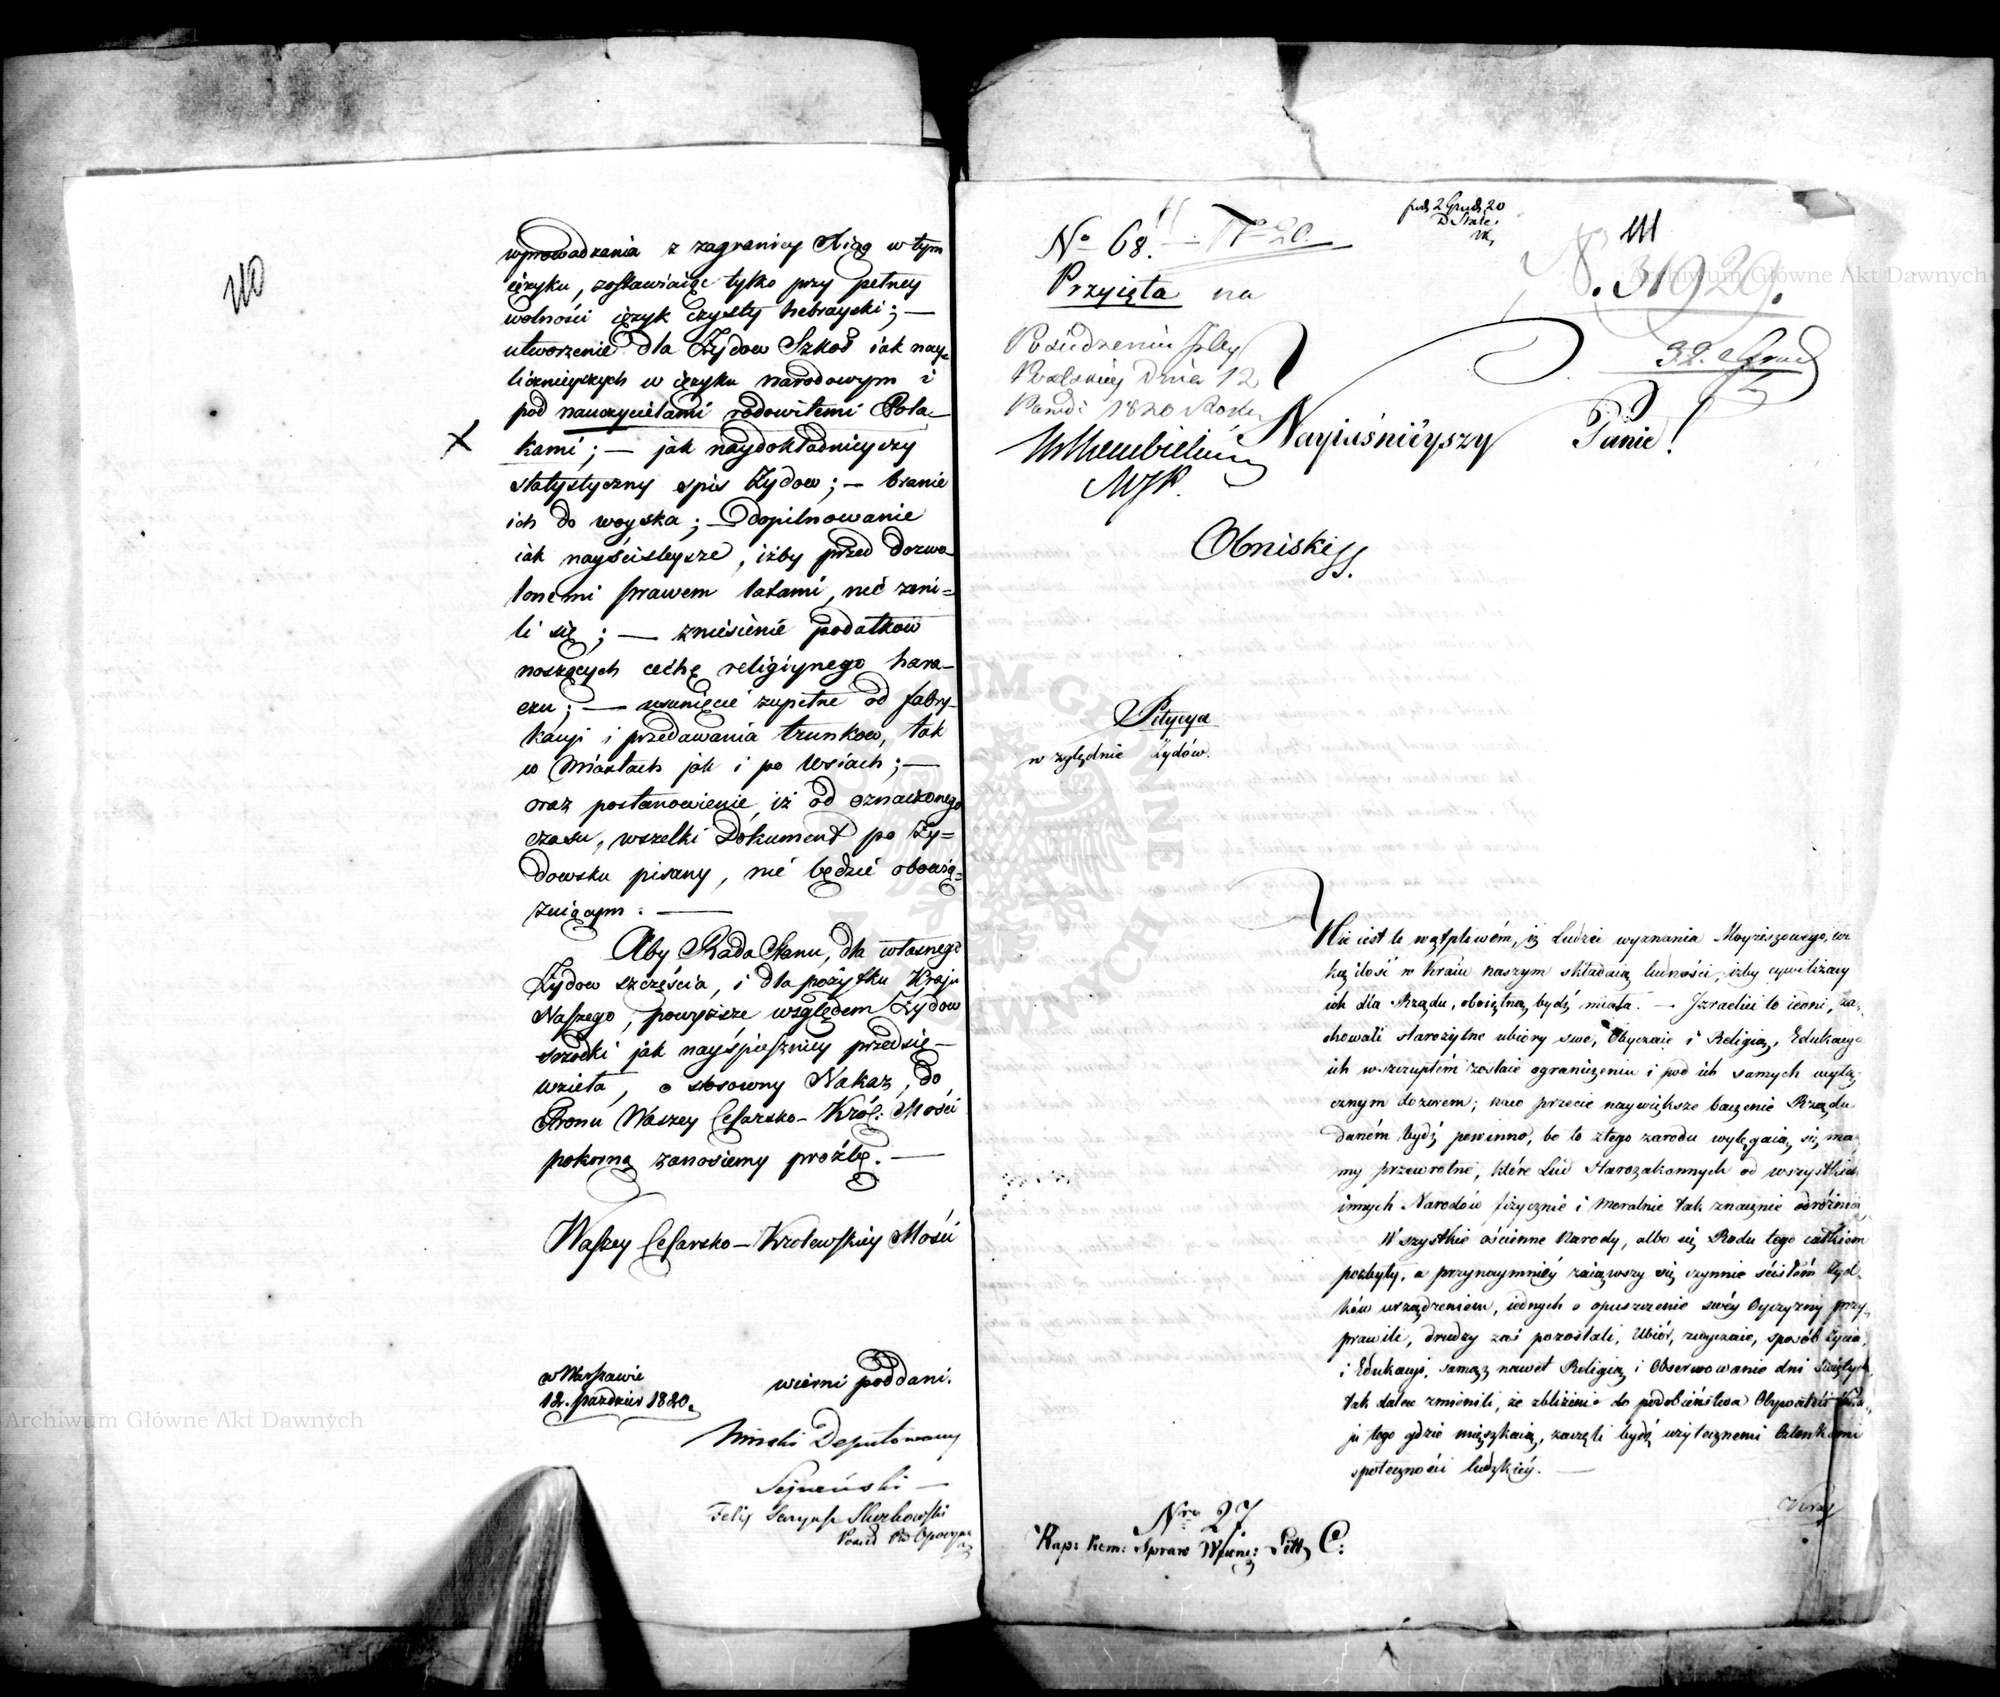 110
wprowadzenia z zagranicy Xiąg w tym
ięzyku, zostawiaiąc tylko przy pełney
wolności ięzyk czysty hebrayski; —
utworzenie dla Żydow Szkoł iak nay-
licznieyszych w ięzyku narodowym i
pod nauczycielami rodowitemi Pola-
kami; — jak naydokładnieyszy
statystyczny spis Żydow; — branie
ich do woyska; — dopilnowanie
iak nayścisleysze, iżby przed dozwo-
lonemi prawem latami, nie żeni=
li się; — zniesienie podatkow
noszących cechę religiynego hara-
czu; — usunięcie zupełne od fabry-
kacyi i przedawania trunkow, tak
w Miastach jak i po Wsiach; —
oraz postanowienie, iż od oznaczonego
czasu, wszelki Dokument po Ży=
dowsku pisany, nie będzie obowią=
zuiącym. —
Aby Rada Stanu, dla własnego
Żydow szczęścia, i dla pożytku Kraju
Naszego, powyższe względem Żydow
srzodki jak nayśpieszniey przedsię-
wzieła, o stosowny Nakaz, do
Tronu Waszey Cesarsko-Król: Mości
pokorną zanosiemy proźbę. —
Waszey Cesarsko-Krolewskiey Mości
w Warszawie
12. Paździer 1820.
wierni poddani.
Deputowany
Sejneński —
Felix
111
2 Grud 20
No 68. —
Przyięta na
Posiedzeniu Izby
Poselskiey Dnia 12
Paździ 1820 Roku
Nayiaśnieyszy Panie!
Obniski
Petycya
względnie Żydów.
Nie iest to wątpliwém, iż Ludzie wyznania Moyżeszowego,
ką ilość w Kraiu naszym składaią ludności, iżby cywilizacy
ich dla Rządu, oboiętną bydź miała. — Izraelici to iedni, za-
chowali starożytne ubiory swe, Obyczaie i Religią, Edukacya
ich w szczupłém zostaie ograniczeniu i pod ich samych wyłą-
cznym dozorem; na to przecie naywiększe baczenie Rządu
daném bydź powinno, bo to złego zarodu wylęgaią się
my przewrotne, które Lud Starozakonnych od wszystkich
innych Narodów fizycznie i moralnie tak znacznie odróżnia
Wszystkie ościenne Narody, albo się Rodu tego całkiem
pozbyły, a przynaymniéy zaiąwszy się czynnie ścisłém Żyd-
ków urządzeniem, iednych o opuszczenie swéy Oyczyzny przy-
prawili, drudzy zaś pozostali, Ubiór, zwyczaie, sposób życia,
i Edukacyi, samąż nawet Religią i Obserwowanie dni Świętych
tak dalece zmienili, że zbliżenie do podobieństwa Obywateli Kra-
ju tego gdzie mięszkaią, zaczęli bydź użytecznemi Członkami
społeczności ludzkiéy. —
Nro 27
Rap: Kom: Spraw Wewnę: Litt C:
Archiwum Główne Akt Dawnych
Archiwum Główne Akt Dawnych